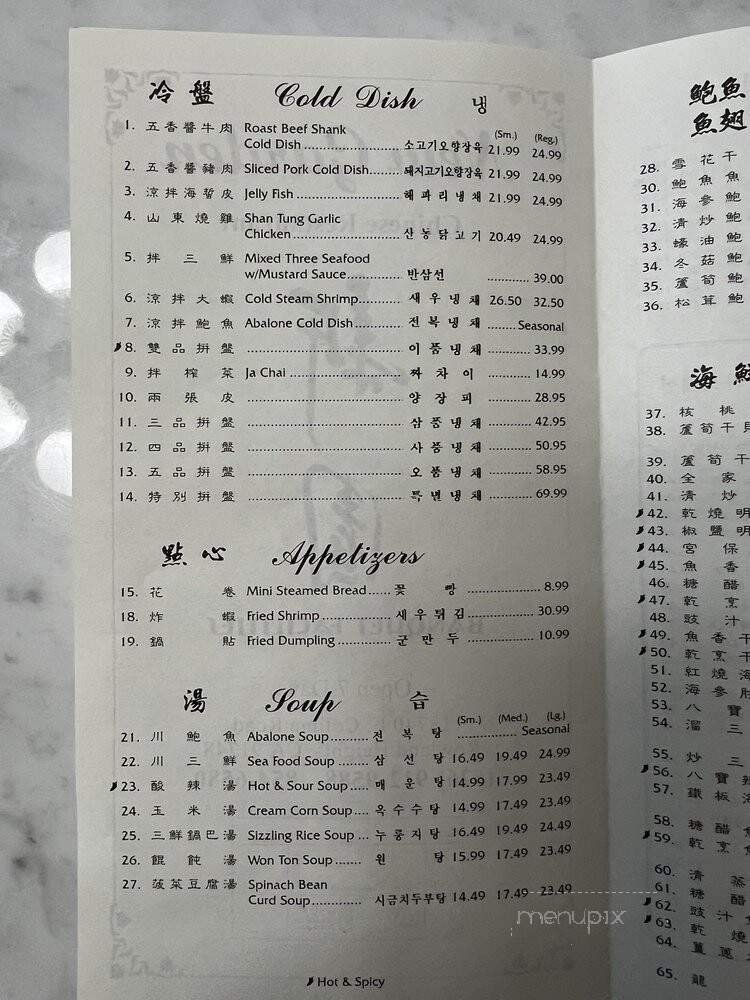 冷盤 Cold Dish 냉
(Sm.) (Reg.)
1. 五香醬牛肉 Roast Beef Shank
Cold Dish 소고기오향장육 21.99 24.99
2. 五香醬豬肉 Sliced Pork Cold Dish 돼지고기오향장육 21.99 24.99
3. 涼拌海蜇皮 Jelly Fish 해파리냉채 21.99 24.99
4. 山東燒雞 Shan Tung Garlic
Chicken 산동닭고기 20.49 24.99
5. 拌三鮮 Mixed Three Seafood
w/Mustard Sauce 반삼선 39.00
6. 涼拌大蝦 Cold Steam Shrimp 새우냉채 26.50 32.50
7. 涼拌鮑魚 Abalone Cold Dish 전복냉채 Seasonal
8. 雙品拼盤 이품냉채 33.99
9. 拌榨菜 Ja Chai 짜차이 14.99
10. 兩張皮 양장피 28.95
11. 三品拼盤 삼품냉채 42.95
12. 四品拼盤 사품냉채 50.95
13. 五品拼盤 오품냉채 58.95
14. 特別拼盤 특별냉채 69.99
點心 Appetizers
15. 花卷 Mini Steamed Bread 꽃빵 8.99
18. 炸蝦 Fried Shrimp 새우튀김 30.99
19. 鍋貼 Fried Dumpling 군만두 10.99
湯 Soup 습
(Sm.) (Med.) (Lg.)
21. 川鮑魚 Abalone Soup 전복탕 Seasonal
22. 川三鮮 Sea Food Soup 삼선탕 16.49 19.49 24.99
23. 酸辣湯 Hot & Sour Soup 매운탕 14.99 17.99 23.49
24. 玉米湯 Cream Corn Soup 옥수수탕 14.99 17.49 23.49
25. 三鮮鍋巴湯 Sizzling Rice Soup 누룽지탕 16.49 19.49 24.49
26. 餛飩湯 Won Ton Soup 원탕 15.99 17.49 23.49
27. 菠菜豆腐湯 Spinach Bean
Curd Soup 시금치두부탕 14.49 17.49 23.49
Hot & Spicy
鮑魚
魚翅
28. 雪花干
30. 鮑魚魚
31. 海參鮑
32. 清炒鮑
33. 蠔油鮑
34. 冬菇鮑
35. 蘆筍鮑
36. 松茸鮑
海鮮
37. 核桃
38. 蘆筍干貝
39. 蘆筍干
40. 全家
41. 清炒
42. 乾燒明
43. 椒鹽明
44. 宮保
45. 魚香
46. 糖醋
47. 乾烹
48. 豉汁
49. 魚香干
50. 乾烹干
51. 紅燒海
52. 海參肚
53. 八寶
54. 溜三
55. 炒三
56. 八寶辣
57. 鐵板海
58. 糖醋魚
59. 乾烹魚
60. 清蒸
61. 糖醋
62. 豉汁
63. 乾燒
64. 薑蔥
65. 龍
menupix